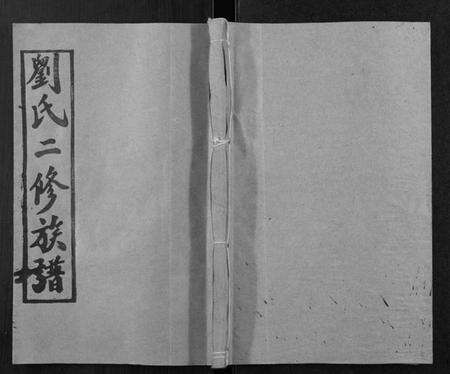 劉氏二修族譜